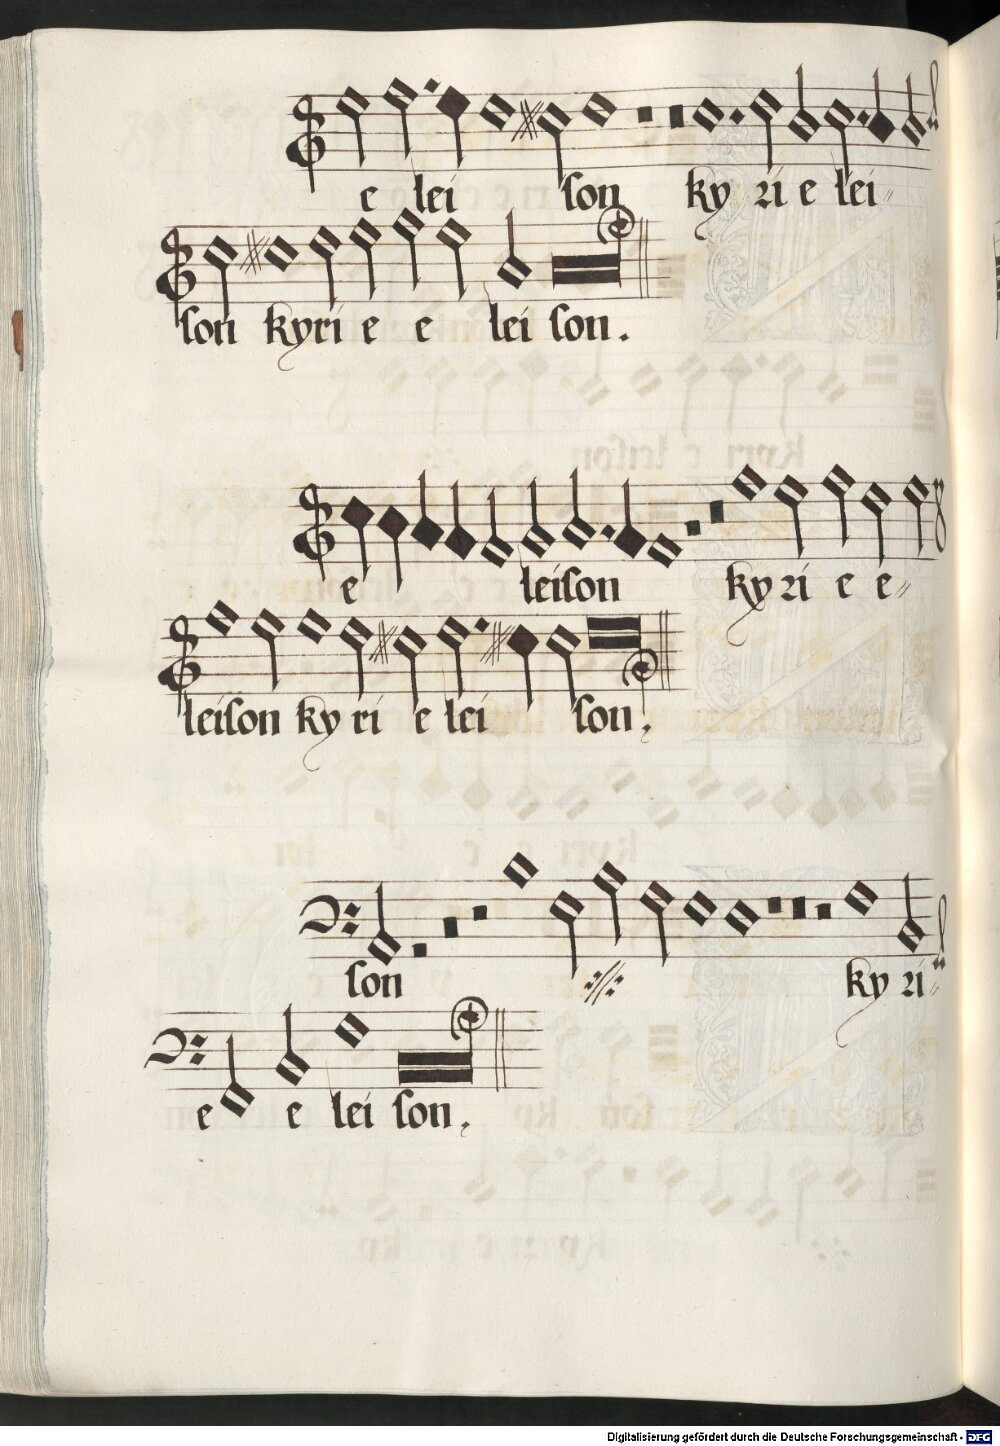 e lei son ky ri e lei⸗
son kyri e e lei son.
e leison ky ri e e⸗
leison ky ri e lei son.
son ky ri⸗
e e lei son.
Digitalisierung gefördert durch die Deutsche Forschungsgemeinschaft - DFG